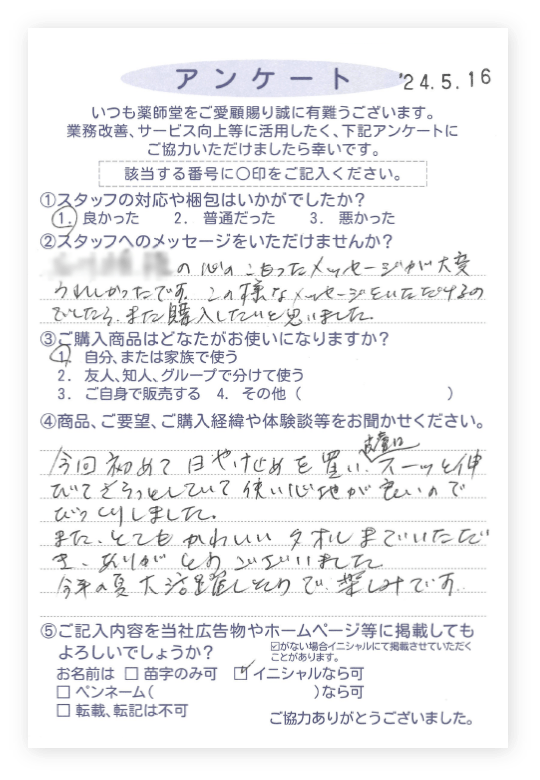 アンケート
'24.5.16
いつも薬師堂をご愛顧賜り誠に有難うございます。
業務改善、サービス向上等に活用したく、下記アンケートに
ご協力いただけましたら幸いです。
該当する番号に〇印をご記入ください。
①スタッフの対応や梱包はいかがでしたか?
1. 良かった 2. 普通だった 3. 悪かった
②スタッフへのメッセージをいただけませんか?
の心のこもったメッセージが大変
うれしかったです。この様なメッセージをいただけるの
でしたら、また購入したいと思いました。
③ご購入商品はどなたがお使いになりますか?
1. 自分、または家族で使う
2. 友人、知人、グループで分けて使う
3. ご自身で販売する 4. その他( )
④商品、ご要望、ご購入経緯や体験談等をお聞かせください。
今回初めて日やけ止めを買い、スーッと伸
びてさらっとしていて使い心地が良いので
びっくりしました。
また、とてもかわいいタオルまでいただ
き、ありがとうございました。
今年の夏大活躍しそうで、楽しみです。
⑤ご記入内容を当社広告物やホームページ等に掲載しても
よろしいでしょうか?
☑がない場合イニシャルにて掲載させていただく
ことがあります。
お名前は □ 苗字のみ可 ☑イニシャルなら可
□ ペンネーム( )なら可
□ 転載、転記は不可
ご協力ありがとうございました。